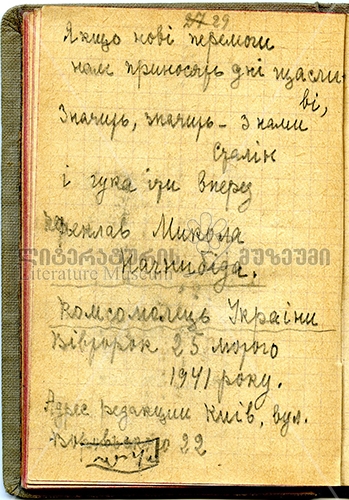 29
Якщо нові перемоги
нам приносять дні щасли-
ві,
Значить, значить – з нами
Сталін
і гука іти вперед
Микола
Нагнибіда.
ლიტერატურის მუზეუმი
Literature Museum
Комсомолець України
Вівторок 25 лютого
1941 року.
Адрес редакции Київ, вул.
22